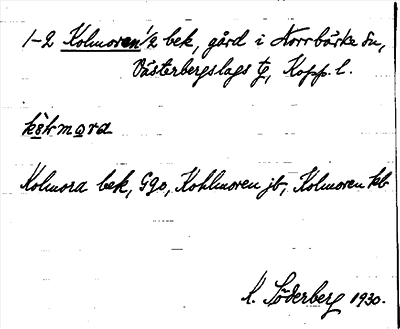 1-2 Kolmoren 1/2 bek, gård i Norrbärke sn,
Västerbergslags tg, Kopp. l.
kålmora
Kolmora bek, Ggo, Kohlmoren jb, Kolmoren kb
K. Söderberg 1930.